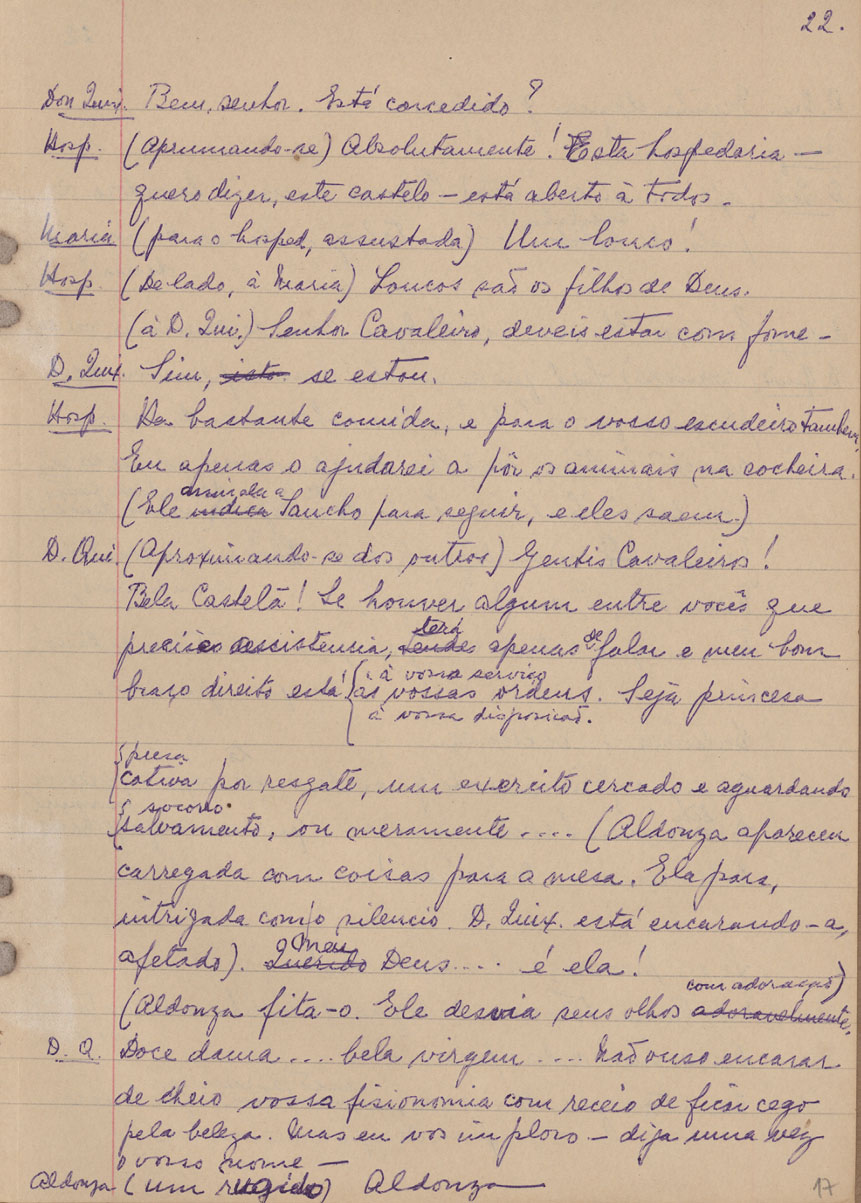 22.
Don Quix. Bem, senhor. Está concedido?
Hosp. (Aprumando-se) Absolutamente! Esta hospedaria —
quero dizer, este castelo — está aberto à todos.
Maria (para o hosped, assustada) Um louco!
Hosp. (De lado, à Maria) Loucos são os filhos de Deus.
(à D. Qui.) Senhor Cavaleiro, deveis estar com fome –
D. Quix. Sim, isto se estou.
Hosp. Ha bastante comida, e para o vosso escudeiro tambem.
Eu apenas o ajudarei a pôr os animais na cocheira.
assinala a
(Ele indica Sancho para seguir, e eles saem.)
D. Qui. (Aproximando-se dos outros) Gentis Cavaleiros!
Bela Castelã! Se houver algum entre vocês que
terá de
precise assistencia, tendes apenas falar e meu bom
à vosso serviço
braço direito está às vossas ordens. Seja princesa
à vossa disposição.
presa
cativa por resgate, um exercito cercado e aguardando
socorro
salvamento, ou meramente .... (Aldonza apareceu
carregada com coisas para a mesa. Ela para,
intrigada com o silencio. D. Quix. está encarando-a,
Meu
afetado). Querido Deus.... é ela!
com adoração)
(Aldonza fita-o. Ele desvia seus olhos adoravelmente.
D. Q. Doce dama .... bela virgem .... Não ouso encarar
de cheio vossa fisionomia com receio de ficar cego
pela beleza. Mas eu vos imploro – diga uma vez
o vosso nome —
Aldonza (um rugido) Aldonza
17